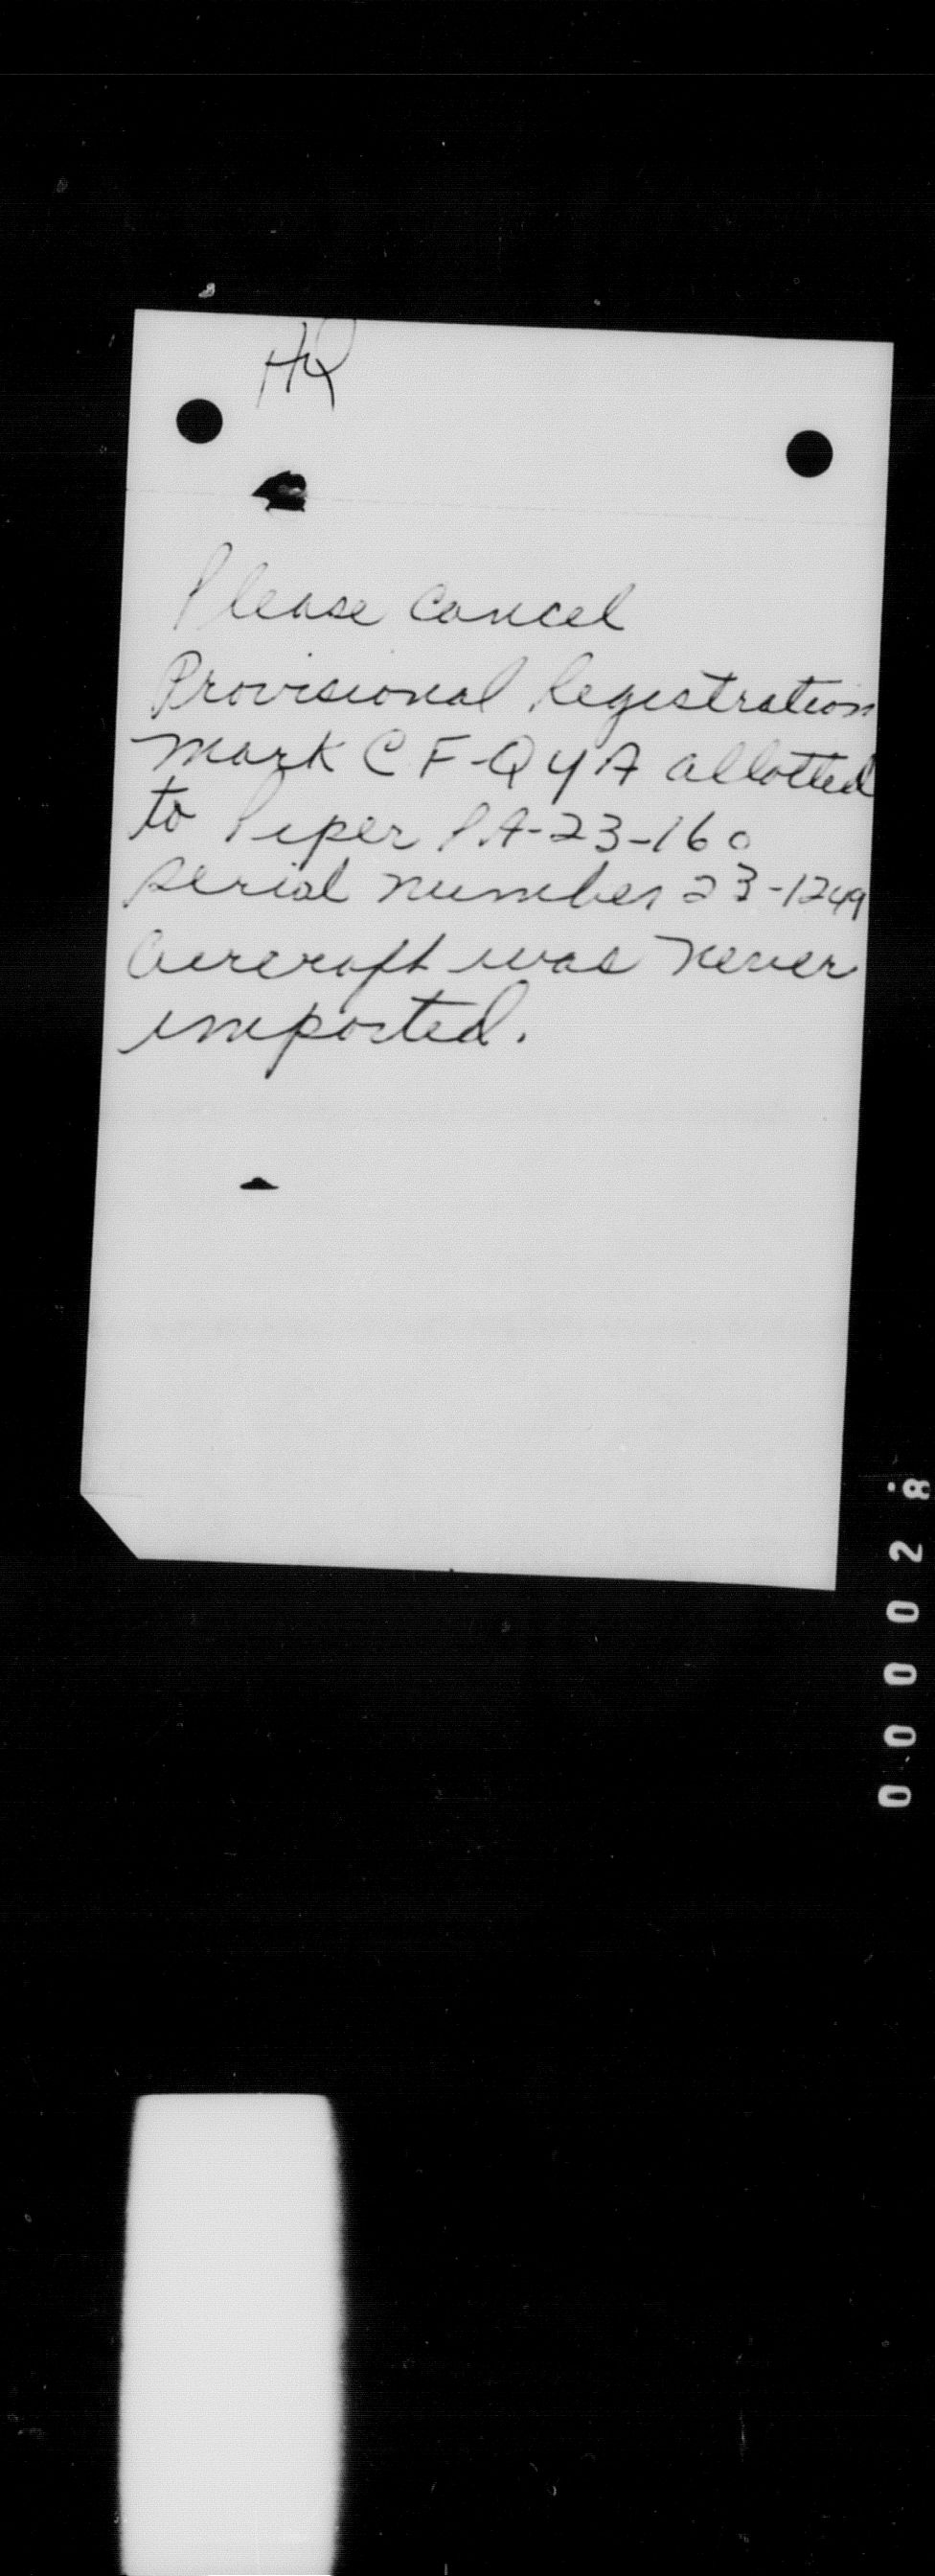 HQ
Please cancel
Provisional Registration
mark CF-QYA allotted
to Piper PA-23-160
serial number 23-1249
aircraft was never
imported.
000028